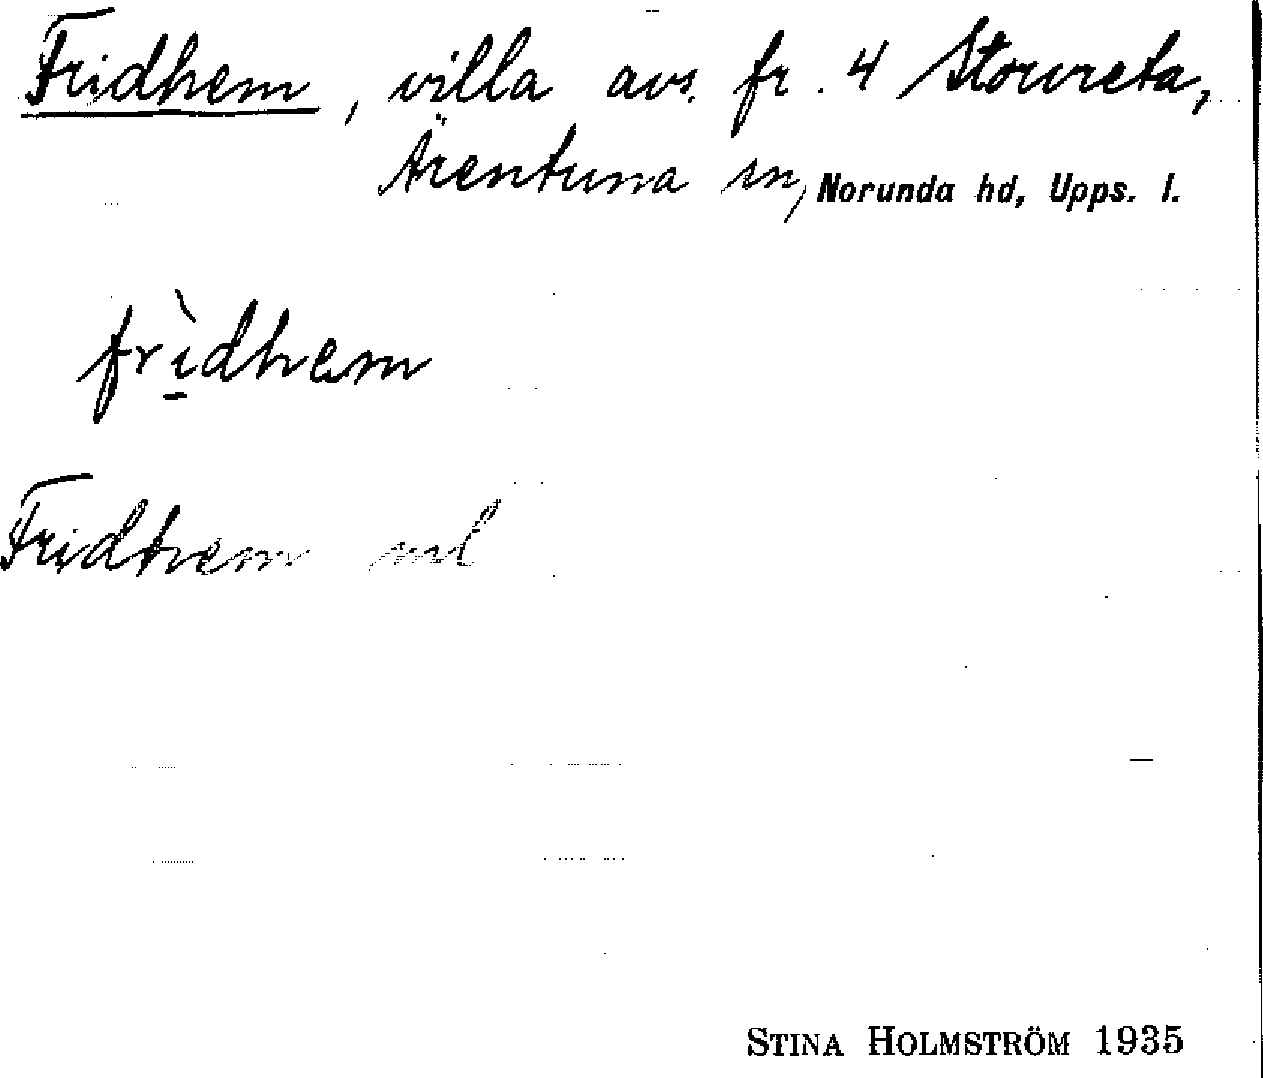 Fridhem, villa avs. fr. 4 Storvreta,
Ärentuna sn, Norunda hd, Upps. l.
frìdhem
Fridhem ml
STINA HOLMSTRÖM 1935